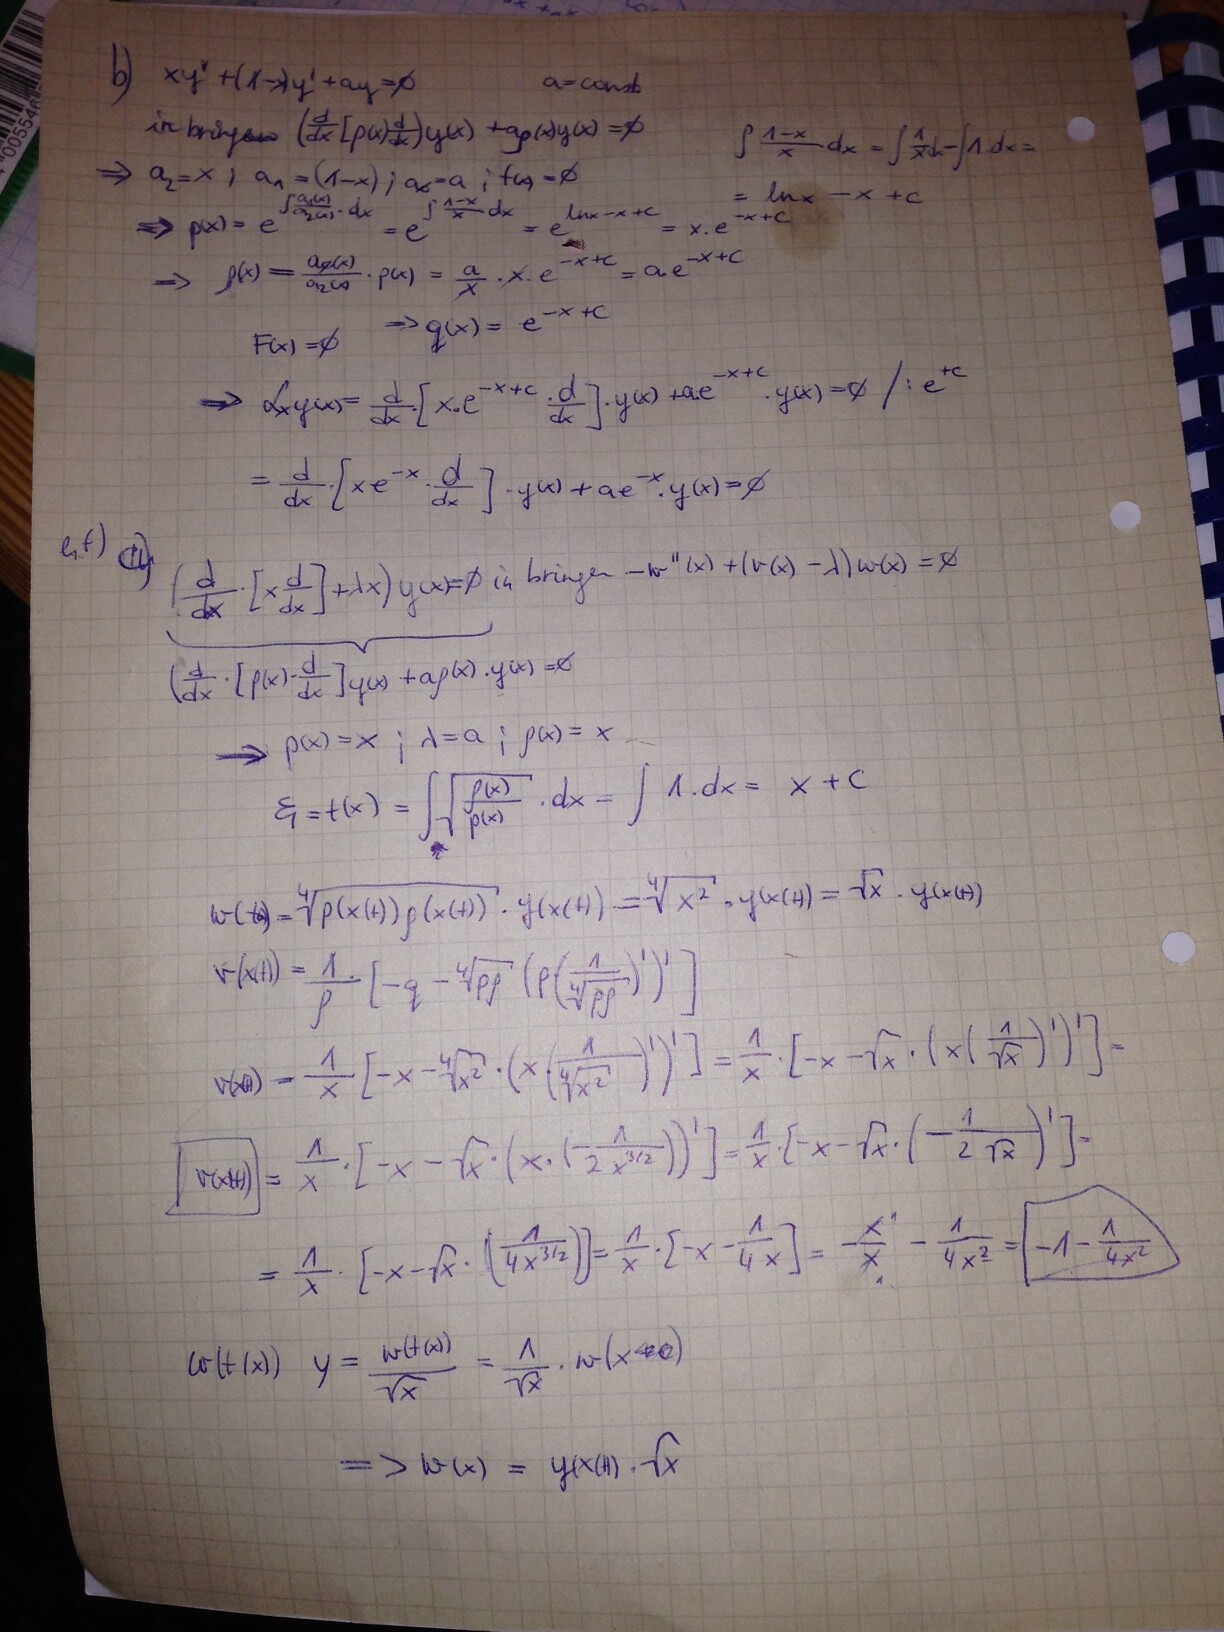 b) xy'' + (1-x)y' + ay = ∅ a = const
in bringen (d/dx [p(x) d/dx]) y(x) + aρ(x)y(x) = ∅
∫ (1-x)/x dx = ∫ 1/x dx - ∫ 1·dx =
⇒ a₂ = x ; a₁ = (1-x) ; a₀ = a ; f(x) = ∅
= ln x - x + c
⇒ p(x) = e^(∫ a₁(x)/a₂(x) · dx) = e^(∫ (1-x)/x dx) = e^(ln x - x + c) = x · e^(-x+c)
⇒ ρ(x) = a₀(x)/a₂(x) · p(x) = a/x · x · e^(-x+c) = a e^(-x+c)
F(x) = ∅ ⇒ q(x) = e^(-x+c)
⇒ ℒₓ y(x) = d/dx · [x · e^(-x+c) · d/dx] · y(x) + a e^(-x+c) · y(x) = ∅ / : e^(+c)
= d/dx · [x e^(-x) · d/dx] · y(x) + a e^(-x) · y(x) = ∅
a) (d/dx · [x d/dx] + λx) y(x) = ∅ in bringen -w''(x) + (v(x) - λ) w(x) = ∅
(d/dx · [p(x) · d/dx] y(x) + aρ(x) · y(x) = ∅
⇒ p(x) = x ; λ = a ; ρ(x) = x
ξ = t(x) = ∫ √(ρ(x)/p(x)) · dx = ∫ 1 · dx = x + c
w(t) = ⁴√(p(x(t)) ρ(x(t))) · y(x(t)) = ⁴√(x²) · y(x(t)) = √x · y(x(t))
v(x(t)) = 1/ρ · [-q - ⁴√(pρ) (p (1/⁴√(pρ))')']
v(x(t)) = 1/x · [-x - ⁴√(x²) · (x · (1/⁴√(x²))')'] = 1/x · [-x - √x · (x (1/√x)')'] =
v(x(t)) = 1/x · [-x - √x · (x · (-1/(2x^(3/2))))'] = 1/x · [-x - √x · (-1/(2√x))'] =
= 1/x · [-x - √x · (1/(4x^(3/2)))] = 1/x · [-x - 1/(4x)] = -x/x - 1/(4x²) = -1 - 1/(4x²)
w(t(x)) y = w(t(x))/√x = 1/√x · w(x+c)
=> w(x) = y(x(t)) · √x